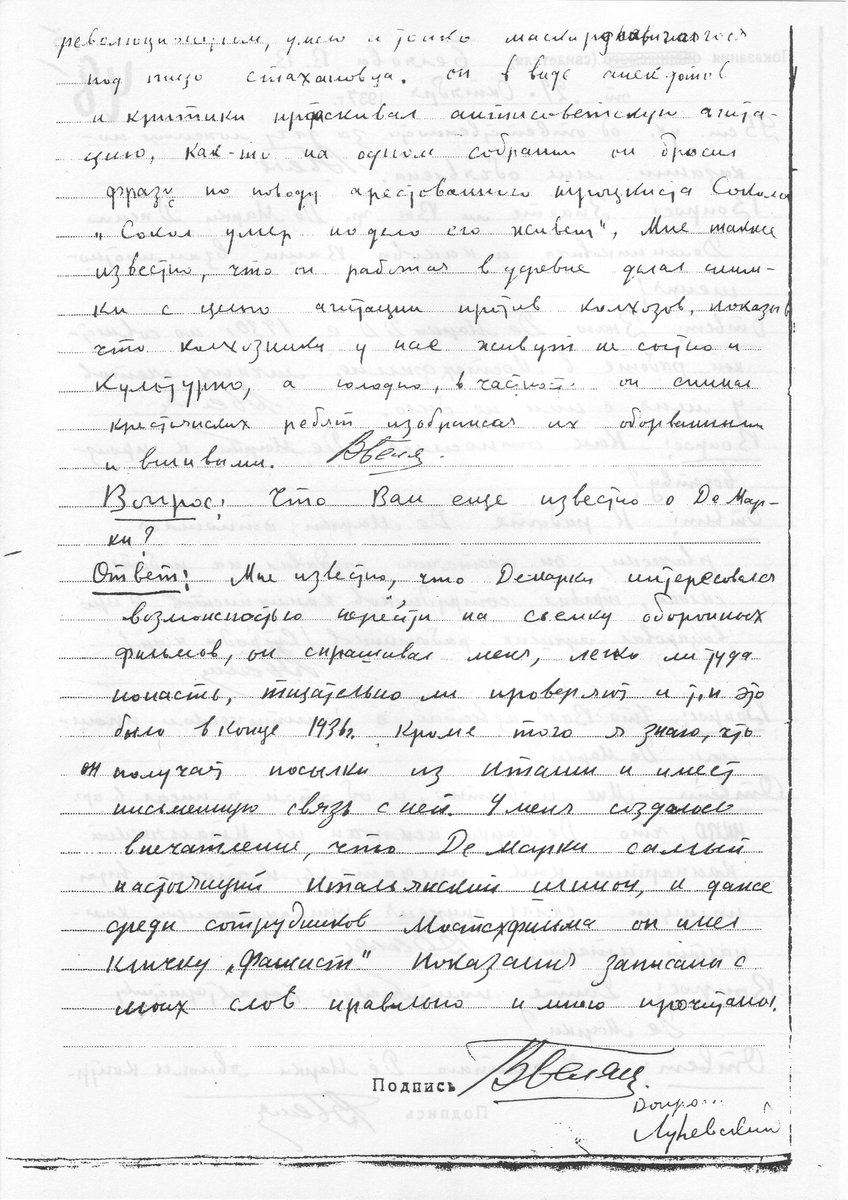 революционером, умело и тонко маскировавшегося
под видо стахановца. он в виде анекдотов
и критики протаскивал антисоветскую агита-
цию, как-то на одном собрании он бросил
фразу по поводу арестованного троцкиста Сокола
"Сокол умер но дело его живет", Мне также
известно, что он работая в деревне делал сним-
ки с целью агитации против колхозов, показыв
что колхозники у нас живут не сытно и
культурно, а голодно, в частност. он снимал
крестьянских ребят изображая их оборванными
и вшивыми.
Вопрос: Что Вам еще известно о Де Мар-
ки?
Ответ: Мне известно, что Де Марки интересовался
возможностью перейти на съемку оборонных
фильмов, он спрашивал меня, легко ли туда
попасть, тщательно ли проверяют и т.п это
было в конце 1936г. Кроме того я знаю, что
он получал посылки из Италии и имеет
письменную связь с ней. У меня создалось
впечатление, что Де Марки самый
настоящий Итальянский шпион, и даже
среди сотрудников Мостехфильма он имел
кличку "Фашист" Показания записаны с
моих слов правильно и мною прочитаны.
Подпись
Допро...